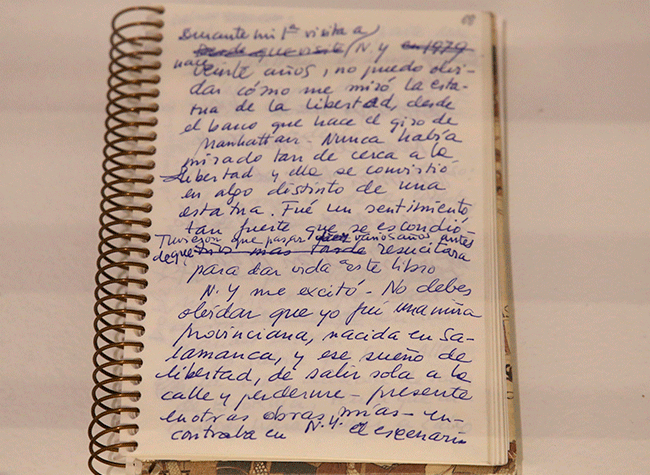 Durante mi 1ª visita a
N.Y en 1979
hace
veinte años, no puedo olvi-
dar cómo me miró la esta-
tua de la libertad, desde
el barco que hace el giro de
Manhattan - Nunca había
mirado tan de cerca a la
libertad y ella se convirtió
en algo distinto de una
estatua. Fué un sentimiento
tan fuerte que se escondió
Tuvieron que pasar varios años antes
de que más tarde resucitara
para dar vida a este libro
N.Y me excitó - No debes
olvidar que yo fuí una niña
provinciana, nacida en Sa-
lamanca, y ese sueño de
libertad, de salir sola a la
calle y perderme - presente
en otras obras mías - en-
contraba en N.Y. el escenario